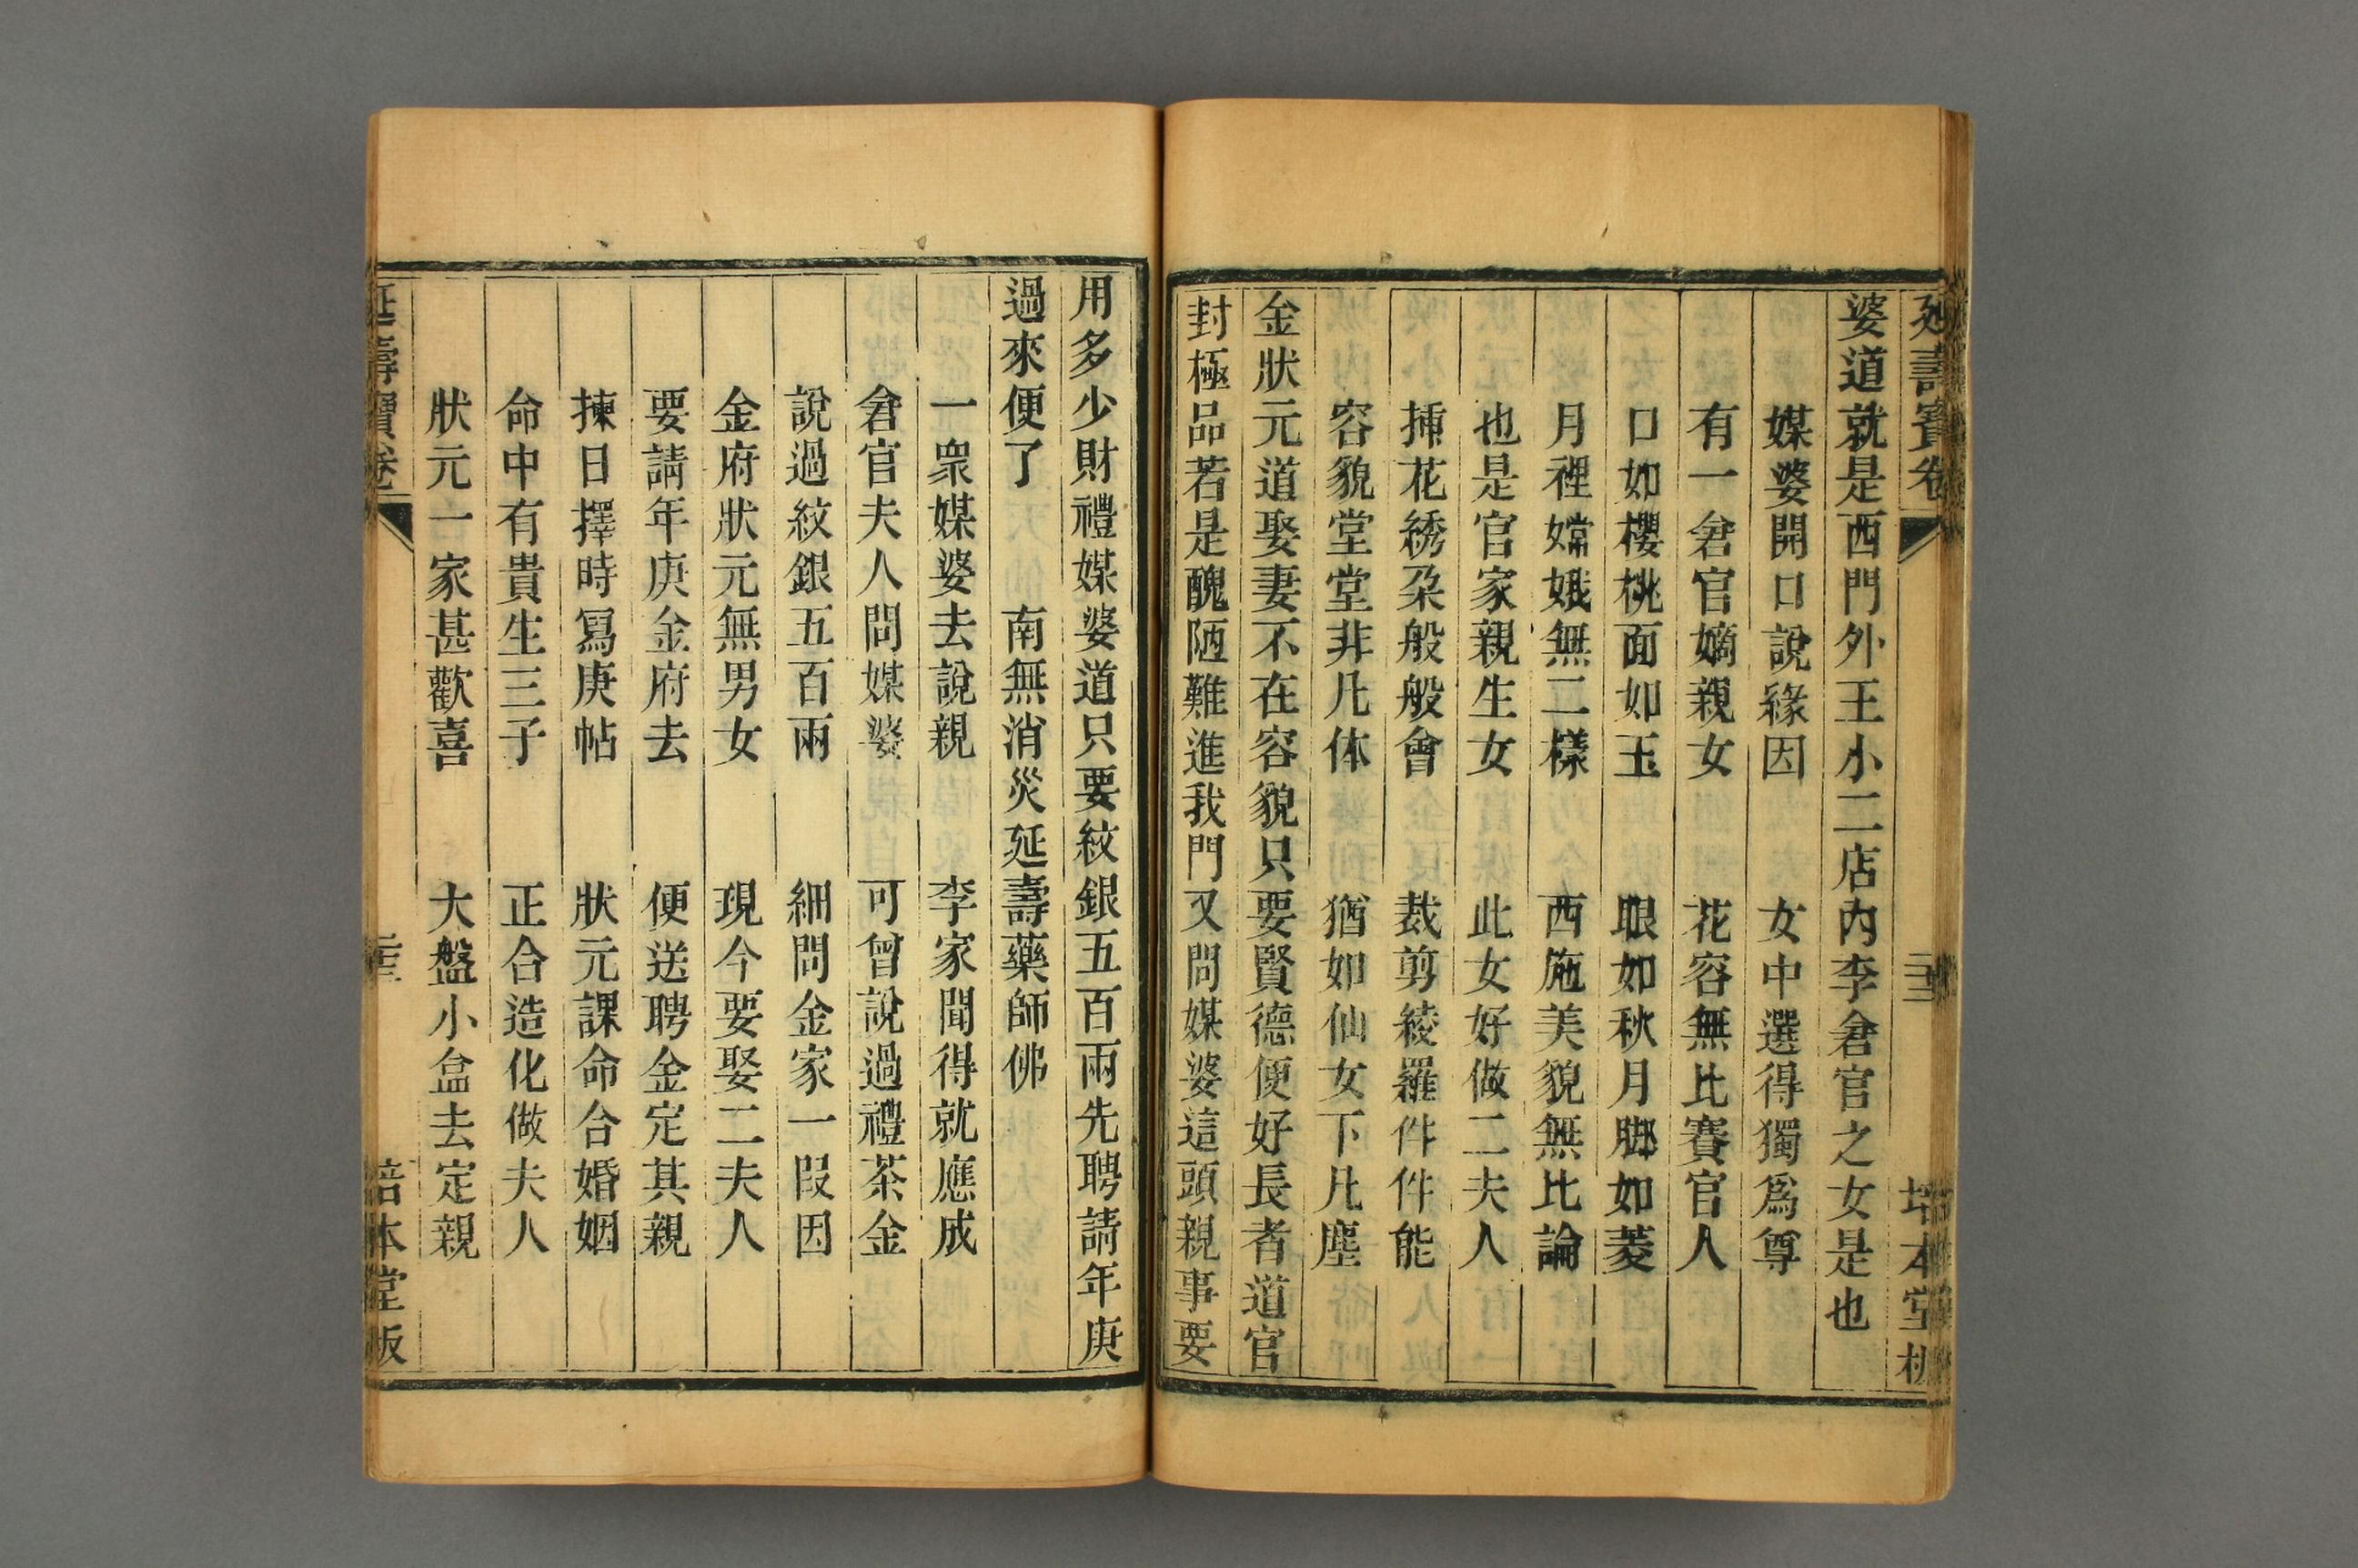 延壽寶卷 二十二 培本堂板
婆道就是西門外王小二店內李倉官之女是也
媒婆開口說緣因 女中選得獨爲尊
有一倉官嫡親女 花容無比賽官人
口如櫻桃面如玉 眼如秋月脚如菱
月裡嫦娥無二樣 西施美貌無比論
也是官家親生女 此女好做二夫人
揷花綉朶般般會 裁剪綾羅件件能
容貌堂堂非凡体 猶如仙女下凡塵
金狀元道娶妻不在容貌只要賢德便好長者道官
封極品若是醜陋難進我門又問媒婆這頭親事要
用多少財禮媒婆道只要紋銀五百兩先聘請年庚
過來便了 南無消災延壽藥師佛
一衆媒婆去說親 李家聞得就應成
倉官夫人問媒婆 可曾說過禮茶金
說過紋銀五百兩 細問金家一叚因
金府狀元無男女 現今要娶二夫人
要請年庚金府去 便送聘金定其親
揀日擇時寫庚帖 狀元課命合婚姻
命中有貴生三子 正合造化做夫人
狀元一家甚歡喜 大盤小盆去定親
延壽寶卷 培本堂板